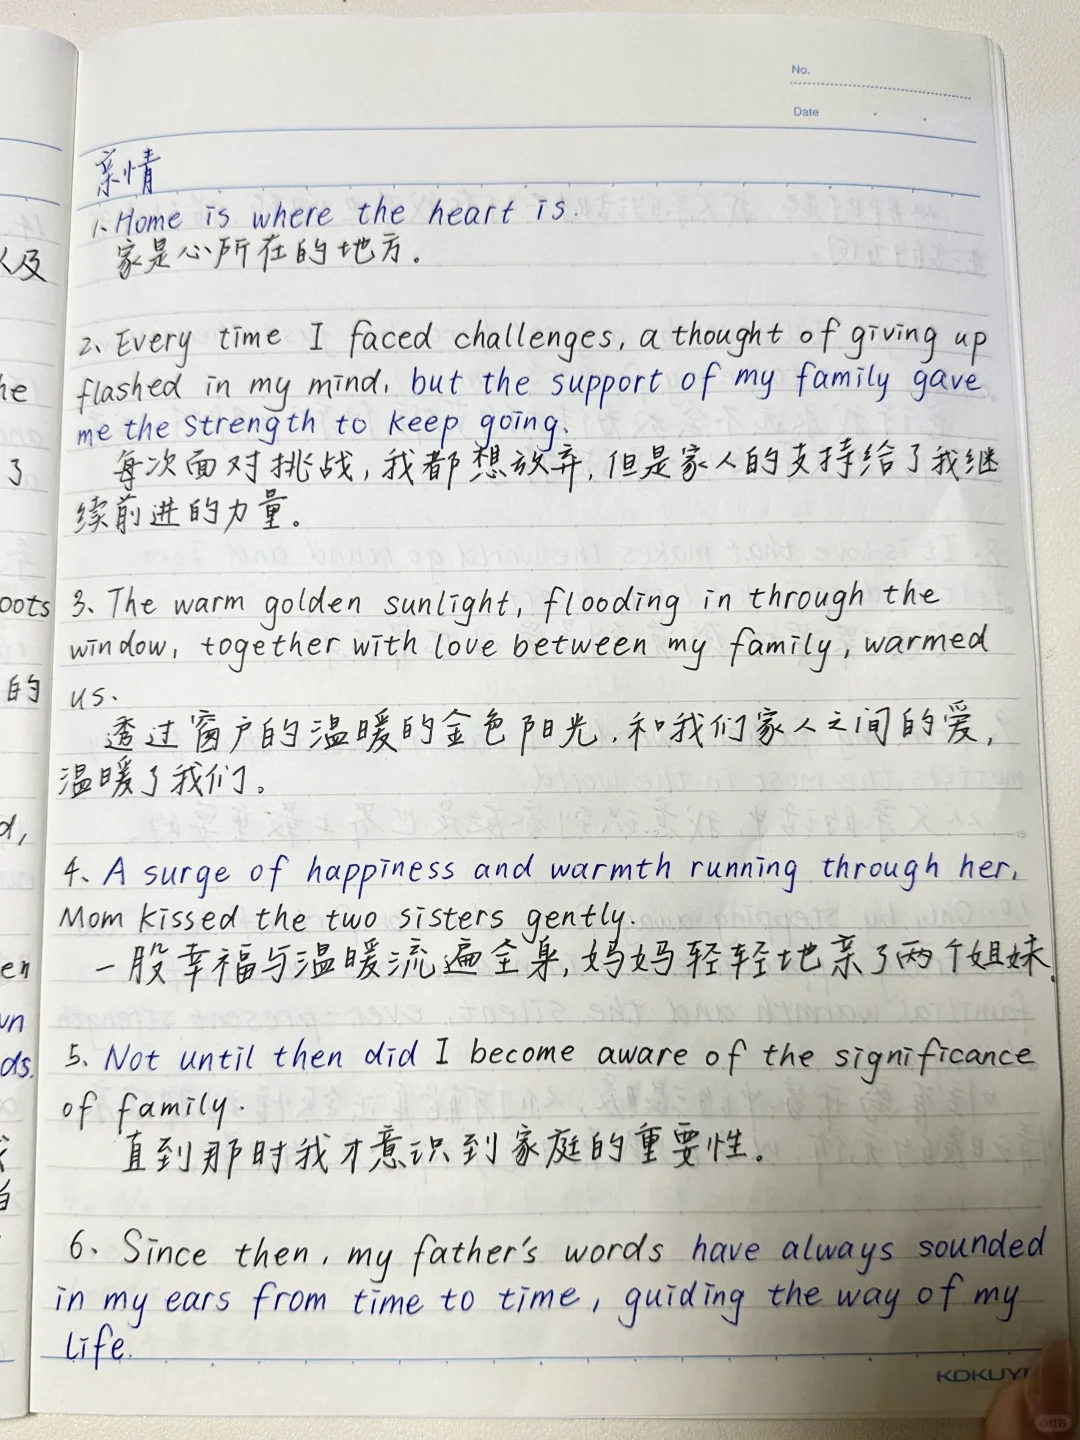 No.
Date
亲情
1、Home is where the heart is.
家是心所在的地方。
2、Every time I faced challenges, a thought of giving up
flashed in my mind, but the support of my family gave
me the strength to keep going.
每次面对挑战，我都想放弃，但是家人的支持给了我继
续前进的力量。
3、The warm golden sunlight, flooding in through the
window, together with love between my family, warmed
us.
透过窗户的温暖的金色阳光，和我们家人之间的爱，
温暖了我们。
4、A surge of happiness and warmth running through her,
Mom kissed the two sisters gently.
一股幸福与温暖流遍全身，妈妈轻轻地亲了两个姐妹。
5、Not until then did I become aware of the significance
of family.
直到那时我才意识到家庭的重要性。
6、Since then, my father's words have always sounded
in my ears from time to time, guiding the way of my
life.
KOKUY
以及
he
了
oots
的
d,
en
wn
ds.
小红书